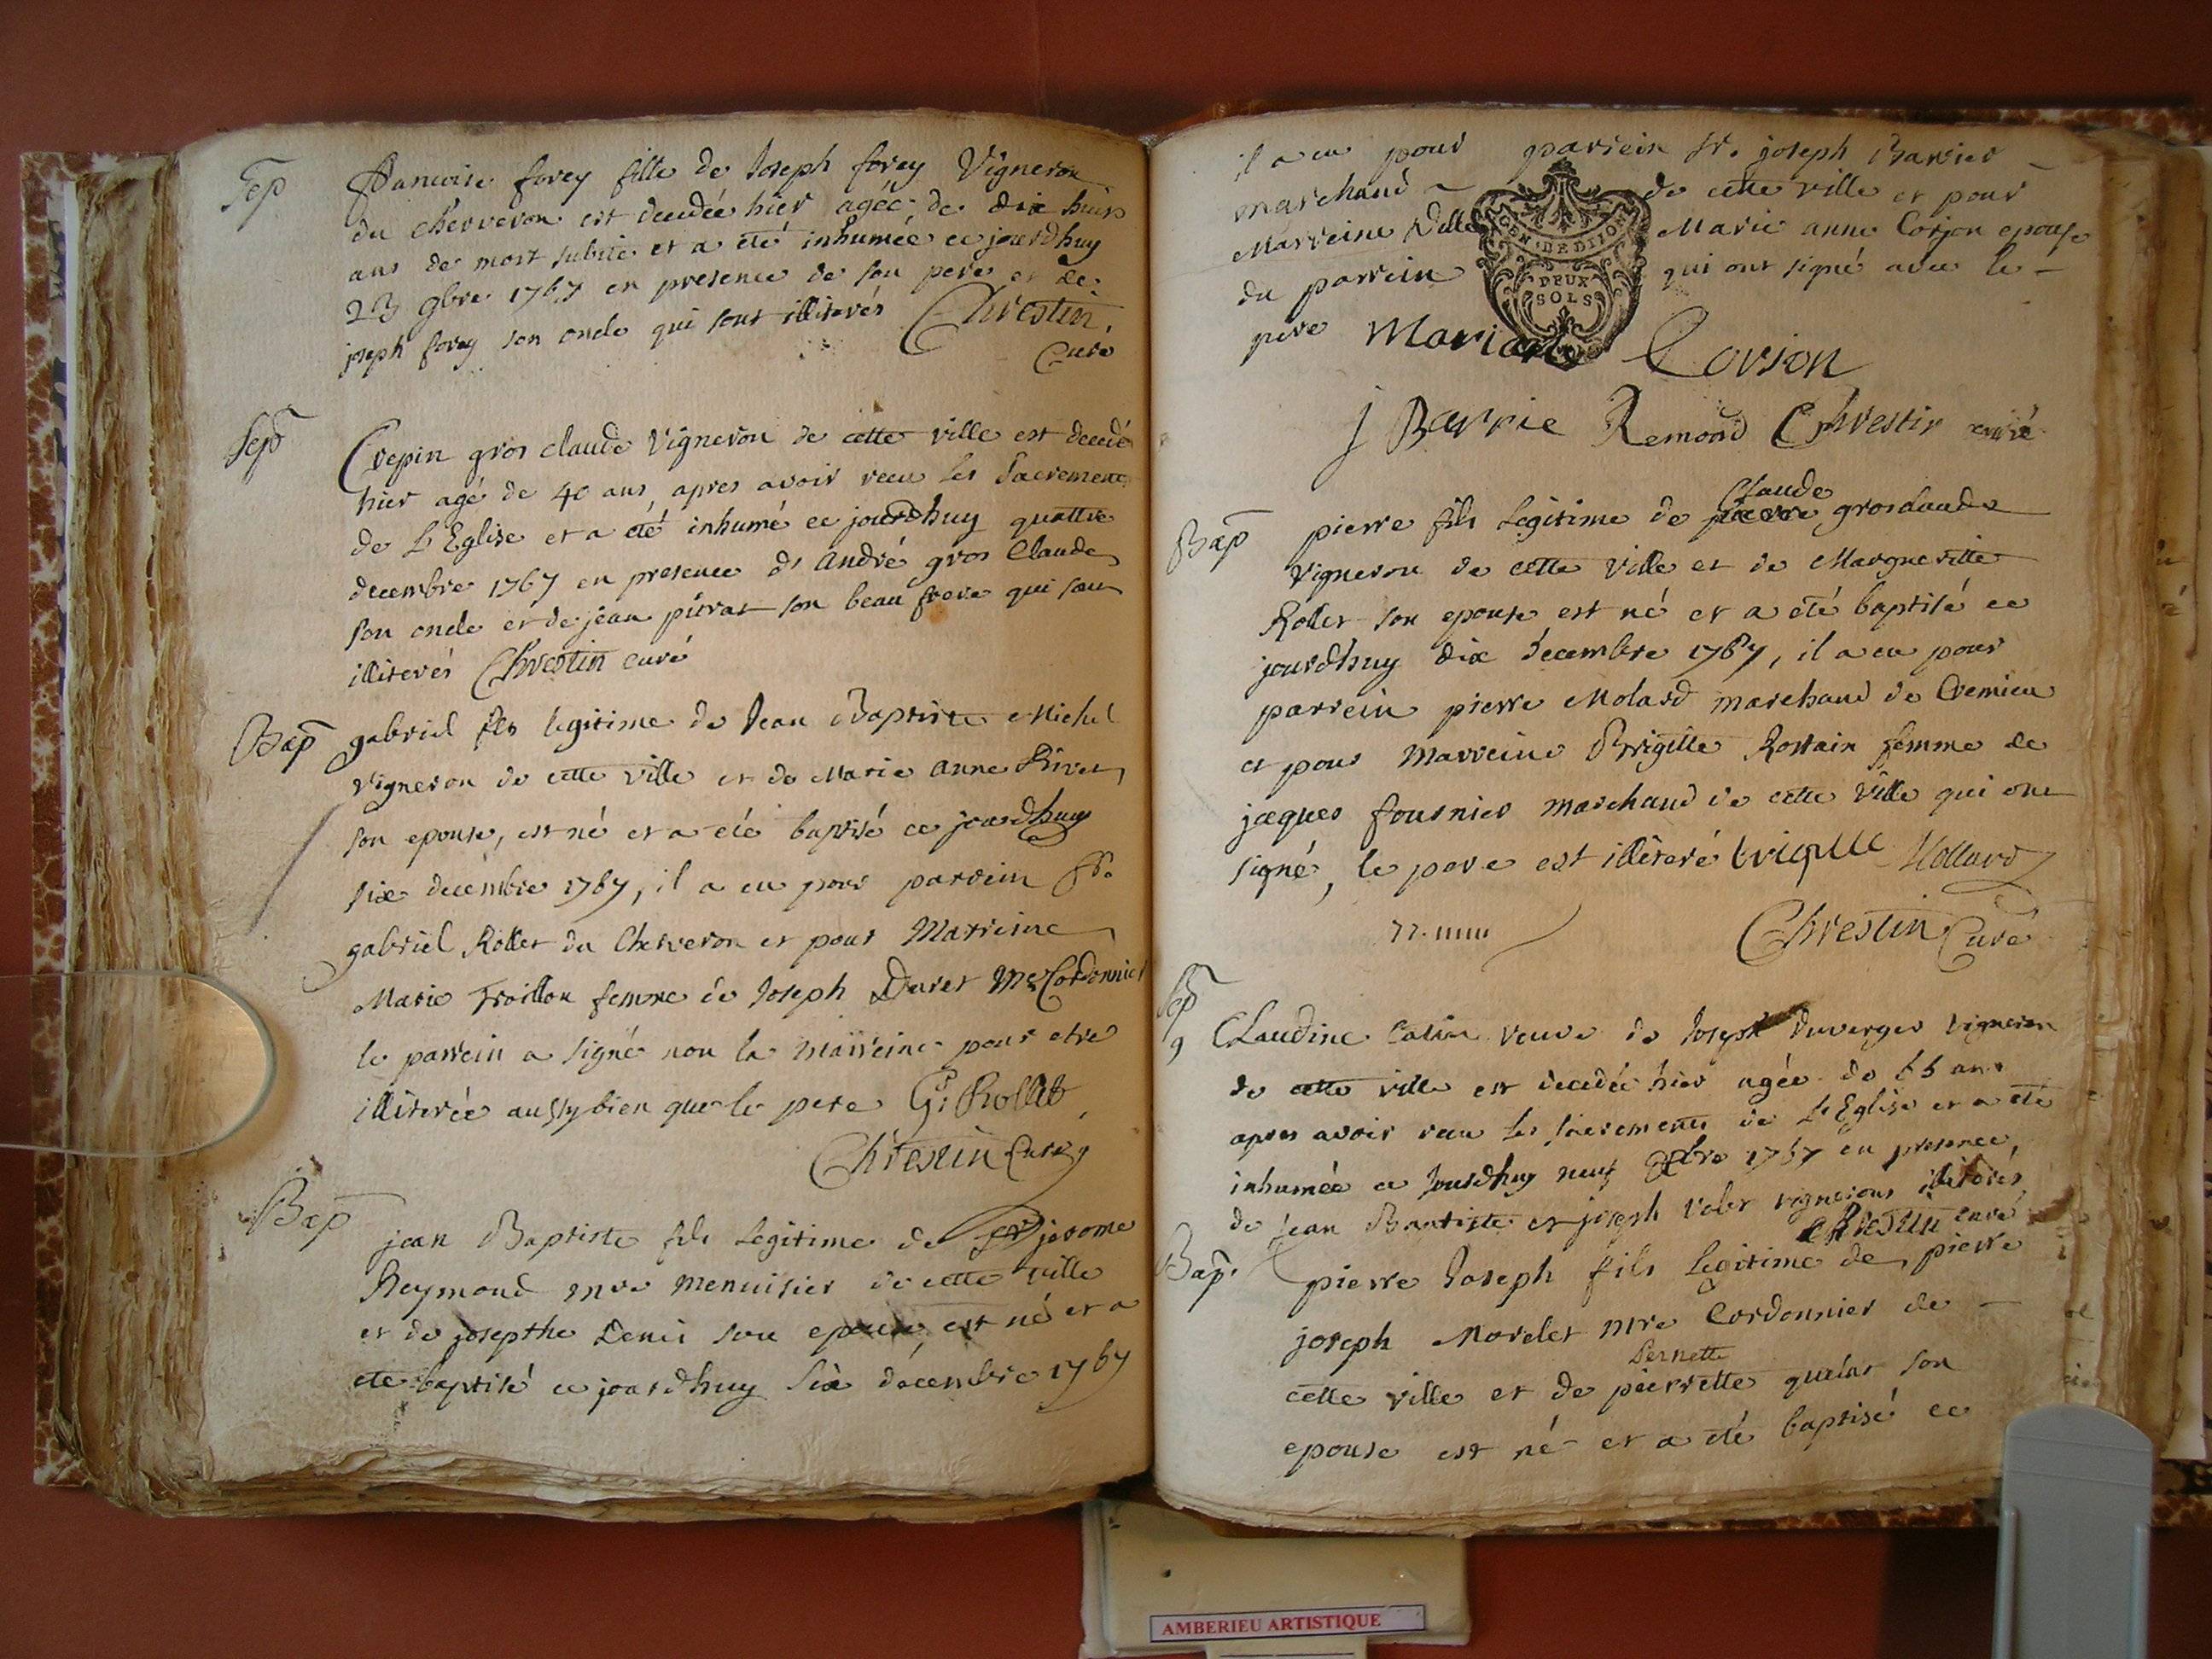 Sep
francoise forey fille de Joseph forey Vigneron
du Cherveron est decedée hier agée de dix huit
ans de mort subite et a eté inhumée ce jourdhuy
23 9bre 1767 en presence de son pere et de
joseph forey son oncle qui sont illiterés Chrestin
Curé
Sep
Crepin gros claude Vigneron de cette ville est decedé
hier agé de 40 ans, apres avoir recu les Sacrements
de L'Eglise et a été inhumé ce jourdhuy quattre
decembre 1767 en presence d' André gros Claude
son oncle et de jean pitrat son beau frere qui sont
illiterés Chrestin curé
Bap
gabriel fils legitime de Jean Baptiste Michel
Vigneron de cette ville et de Marie Anne Rivet
son epouse, est né et a eté baptisé ce jourdhuy
six decembre 1767, il a eu pour parrein Sr.
gabriel Rollet du Cherveron et pour Marreine
Marie Troillon femme de Joseph Duret Me Cordonnier
le parrein a signé non la marreine pour etre
illiterée aussy bien que le pere G: Rollet
Chrestin Curé
Bap
jean Baptiste fils legitime de jerome
Reymond mre menuisier de cette ville
et de josepthe Denis son epouse, est né et a
eté baptisé ce jourdhuy six décembre 1767
il a eu pour parrein Sr. joseph Barrier
marchand de cette ville et pour
Marreine Dlle Marie anne Corjon epouse
du parrein qui ont signé avec le
pere Mariane Corjon
GEN. DE DIJON
DEUX
SOLS
J Barrie Remond Chrestin curé
Bap
Claude
pierre fils legitime de pierre grosclaude
Vigneron de cette ville et de Margueritte
Rollet son epouse est né et a eté baptisé ce
jourdhuy dix decembre 1767, il a eu pour
parrein pierre Molard marchand de Cremieu
et pour Marreine Brigitte Rostain femme de
jacques fournier marchand de cette Ville qui ont
signé, le pere est illiteré Mollard
Chrestin Curé
Sep
9
Claudine veuve de Joseph Duverger vigneron
de cette ville est decedée hier agée de 65 ans
apres avoir recu les sacrements de L'Eglise et a eté
inhumée ce Jourdhuy neuf Xbre 1767 en presence
de Jean Baptiste et joseph Volet vignerons illiterés
Chrestin curé
Bap.
pierre Joseph fils legitime de pierre
joseph Morelet mre Cordonnier de
Pernette
cette ville et de pierrette quelat son
epouse est né et a eté baptisé ce
AMBERIEU ARTISTIQUE